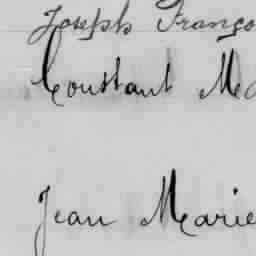 Joseph Franço
Constant Ma
Jean Marie